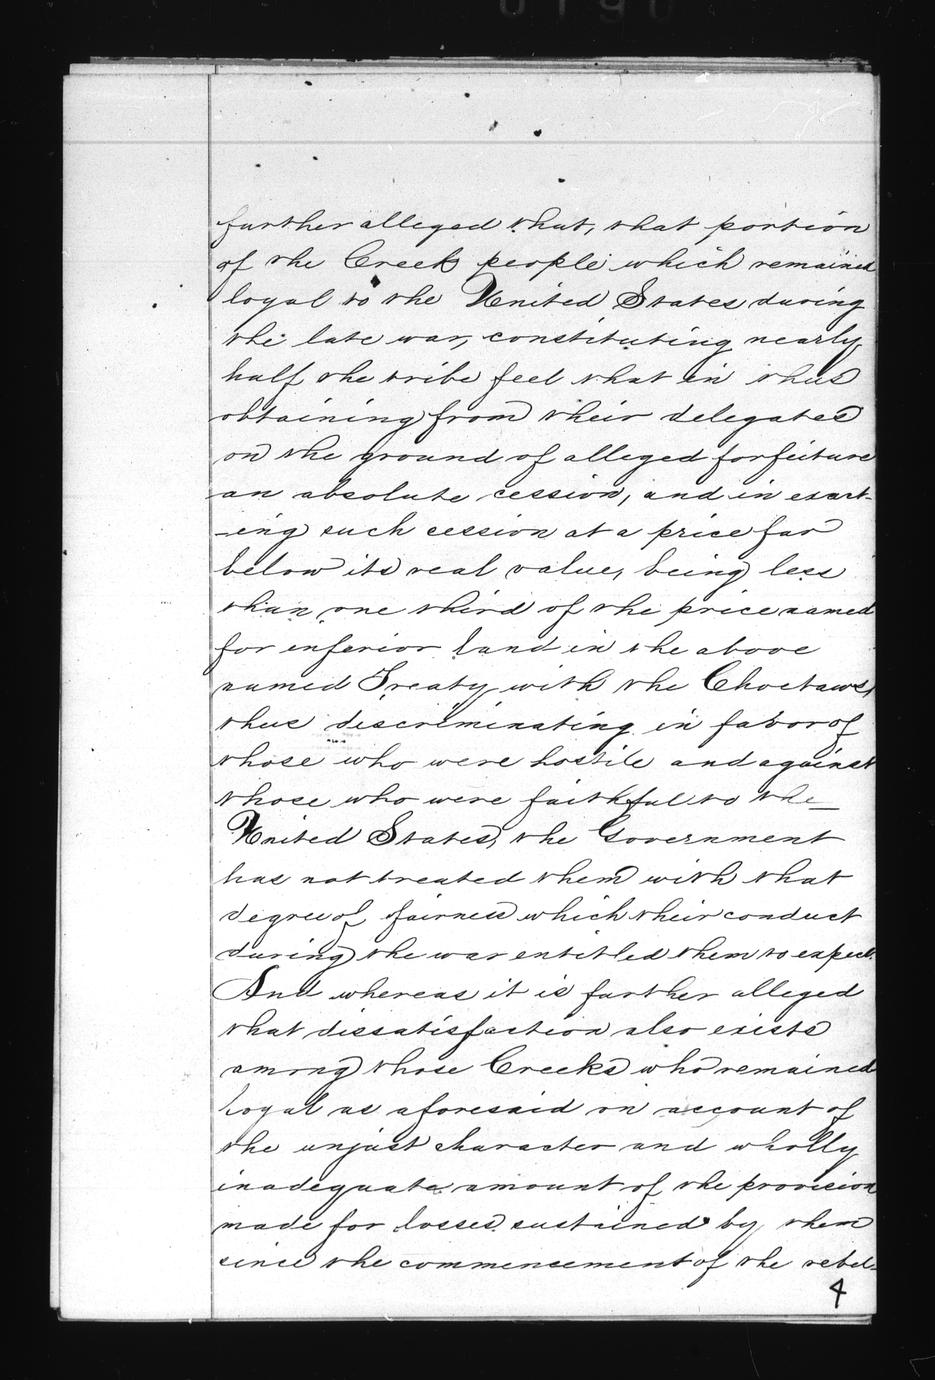 0190
further alleged that, that portion
of the Creek people which remained
loyal to the United States during
the late war, constituting nearly
half the tribe feel that in thus
obtaining from their delegates
on the ground of alleged forfeiture
an absolute cession, and in exact-
-ing such cession at a price far
below its real value, being less
than one third of the price named
for inferior land in the above
named Treaty with the Choctaws,
thus discriminating in favor of
those who were hostile and against
those who were faithful to the
United States, the Government
has not treated them with that
degree of fairness which their conduct
during the war entitled them to expect.
And whereas it is further alleged
that dissatisfaction also exists
among those Creeks who remained
loyal as aforesaid on account of
the unjust character and wholly
inadequate amount of the provision
made for losses sustained by them
since the commencement of the rebel-
4